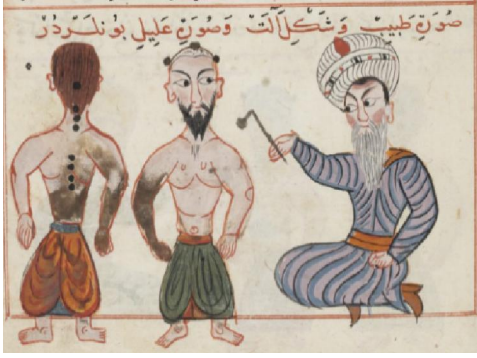 صُورَةِ طَبِيبْ وَشَكْلِ آلَتْ وَصُورَةِ عَلِيلِ بُونْلَرْدُرْ